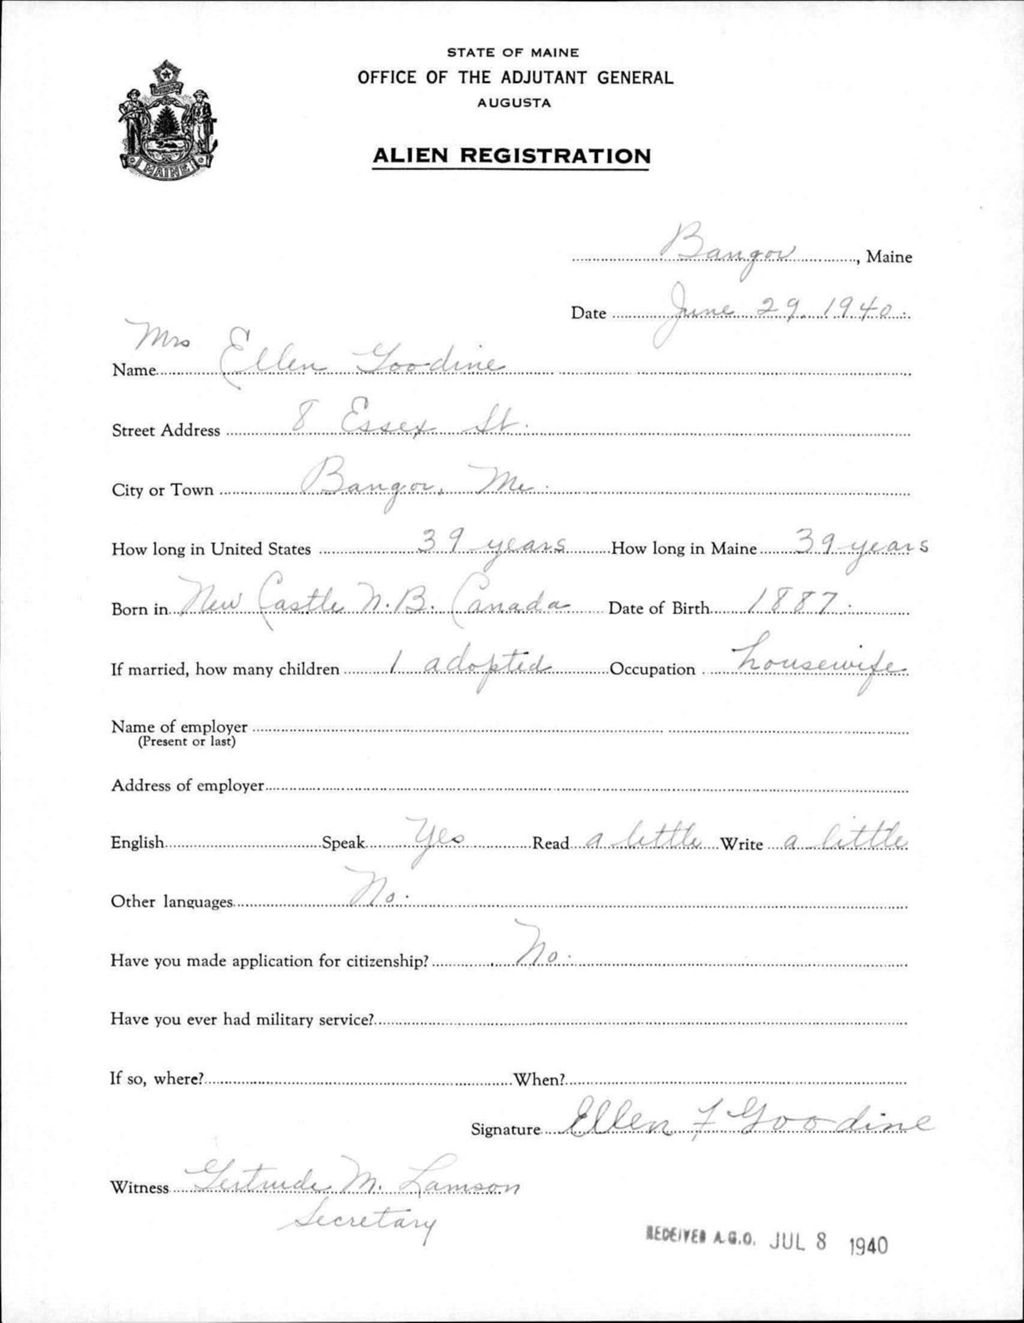 STATE OF MAINE
OFFICE OF THE ADJUTANT GENERAL
AUGUSTA
MAINE
ALIEN REGISTRATION
Bangor, Maine
Date June 29, 1940.
Name Mrs Ellen Goodine
Street Address 8 Essex St.
City or Town Bangor, Me.
How long in United States 39 years How long in Maine 39 years
Born in New Castle N.B. Canada Date of Birth 1887.
If married, how many children 1 adopted Occupation housewife
Name of employer
(Present or last)
Address of employer
English Speak Yes Read a little Write a little
Other languages No.
Have you made application for citizenship? No.
Have you ever had military service?
If so, where? When?
Signature Ellen F Goodine
Witness Gertrude M. Lamson
Secretary
RECEIVED A.G.O. JUL 8 1940